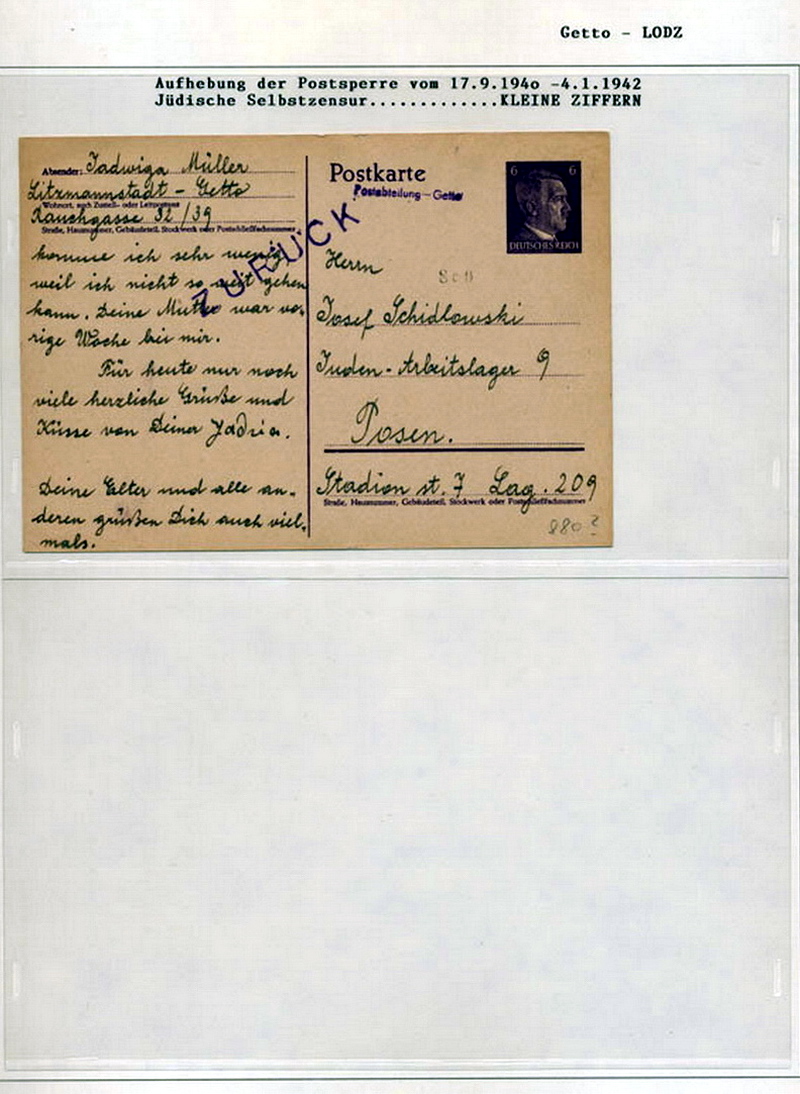 Getto - LODZ
Aufhebung der Postsperre vom 17.9.194o -4.1.1942
Jüdische Selbstzensur.............KLEINE ZIFFERN
Absender: Jadwiga Müller
Litzmannstadt - Getto
Wohnort, auch Zustell- oder Leitpostamt
Rauchgasse 32/39
Straße, Hausnummer, Gebäudeteil, Stockwerk oder Postschließfachnummer
komme ich sehr wenig,
weil ich nicht so weit gehen
kann. Deine Mutter war vo-
rige Woche bei mir.
Für heute nur noch
viele herzliche Grüße und
Küsse von Deiner Jadzia.
Deine Elter und alle an-
deren grüßen Dich auch viel-
mals.
ZURÜCK
Postkarte
Postabteilung - Getto
6 6
DEUTSCHES REICH
Herrn
Josef Schidlowski
Juden-Arbeitslager 9
Posen.
Stadion st. 7 Lag. 209
Straße, Hausnummer, Gebäudeteil, Stockwerk oder Postschließfachnummer
880